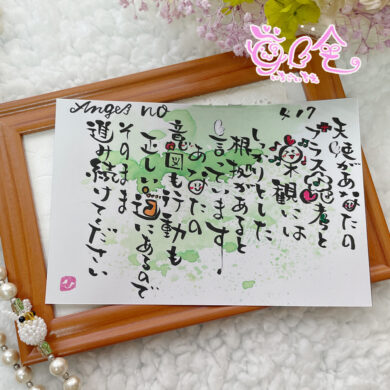 Angel no 417
天使があなたの
プラス思考と
楽観には
しっかりとした
根拠があると
言ってます!
あなたの
意図も行動も
正しい道にあるので
そのまま
進み続けてください